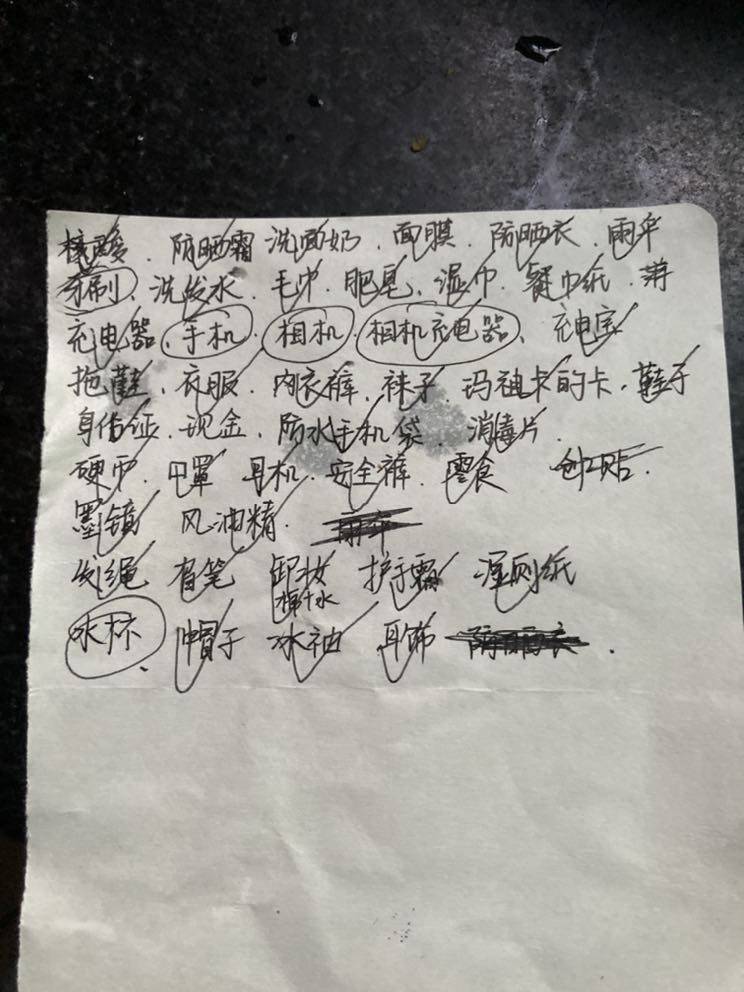 核酸、防晒霜 洗面奶、面膜、防晒衣、雨伞
牙刷、洗发水、毛巾、肥皂、湿巾、餐巾纸、薄
充电器、手机、相机、相机充电器、充电宝
拖鞋、衣服、内衣裤、袜子、玛祖卡的卡、鞋子
身份证、现金、防水手机袋、消毒片
硬币、口罩 耳机、安全裤、零食 创口贴.
墨镜 风油精. 雨伞
发绳 眉笔 卸妆 护手霜 湿厕纸
棉+水
水杯、帽子 冰袖 耳饰 防晒衣.